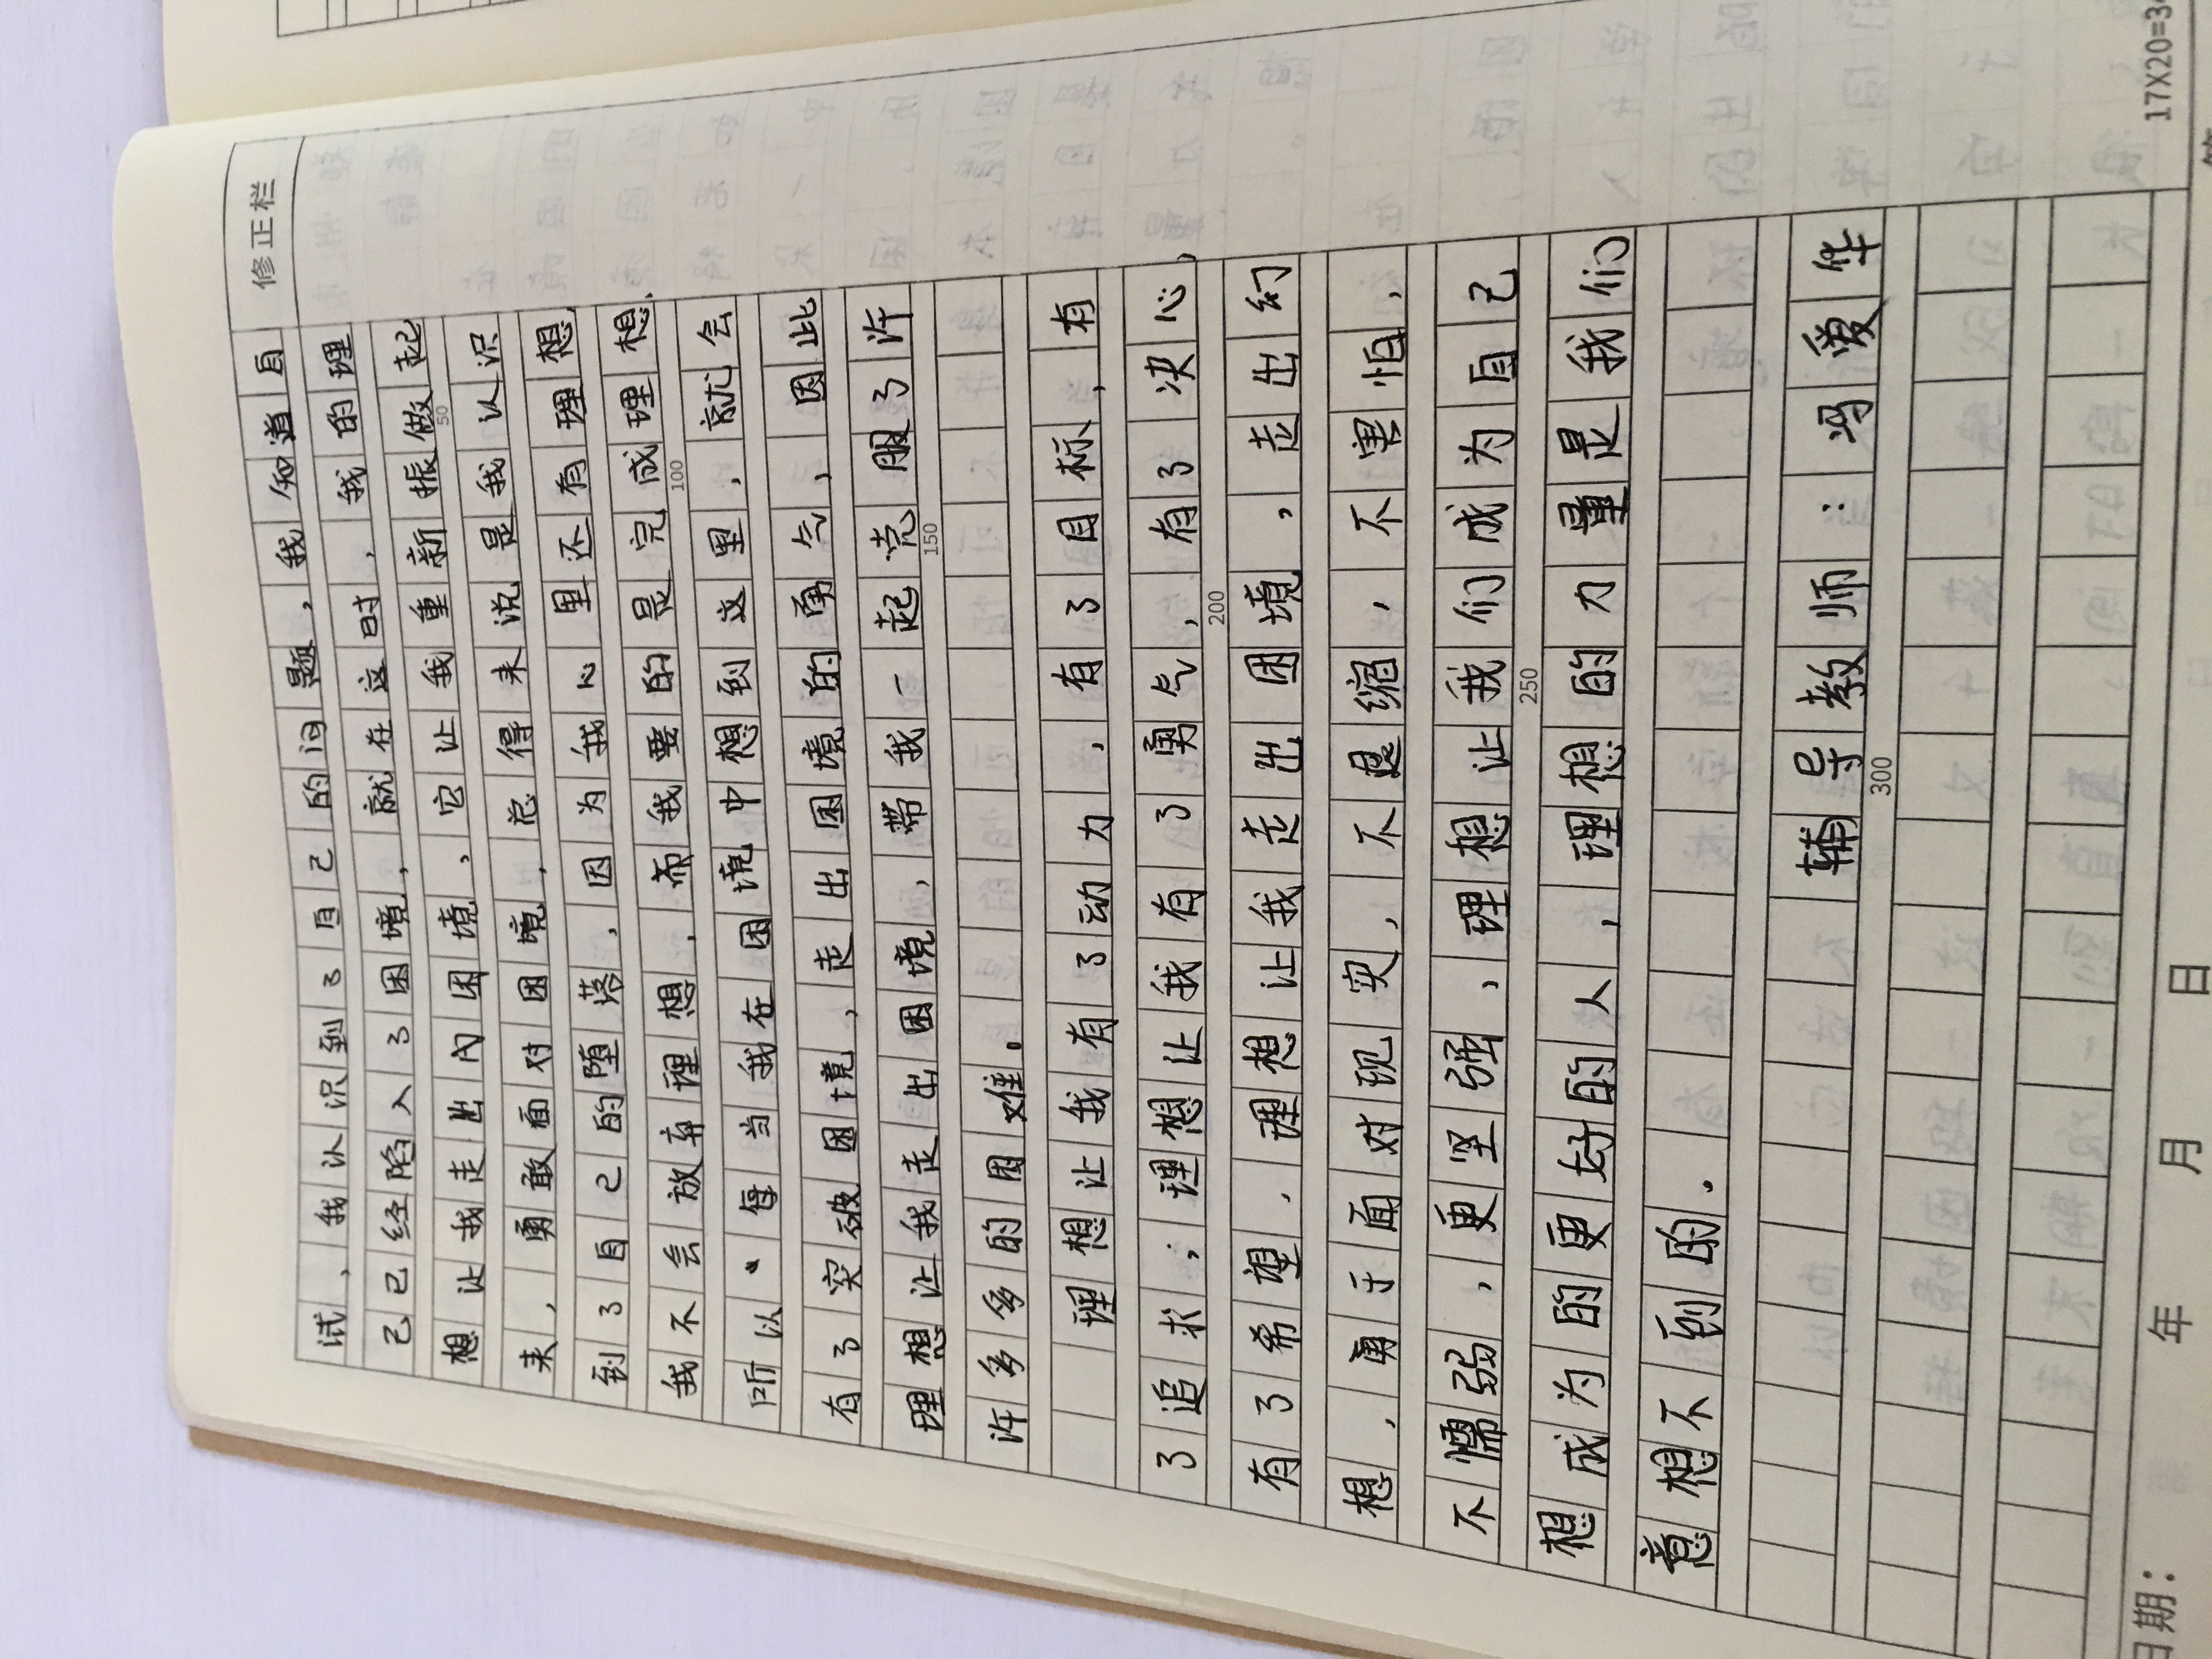 修正栏
试，我认识到了自己的问题，我知道自
己已经陷入了困境，就在这时，我的理
想让我走出内困境、它让我重新振做起
来，勇敢面对困境，总得来说是我认识
到了自己的堕落，因为我心里还有理想，
我不会放弃理想，而我要的是完成理想，
所以、每当我在困境中想到这里，就会
有了突破困境，走出困境的勇气，因此
理想让我走出困境，带我一起克服了许
许多多的困难。
理想让我有了动力，有了目标，有
了追求；理想让我有了勇气，有了决心，
有了希望，理想让我走出困境，走出幻
想，勇于面对现实，不退缩，不害怕，
不懦弱，更坚强，理想让我们成为自己
想成为的更好的人，理想的力量是我们
意想不到的.
辅导教师：冯爱华
50
100
150
200
250
300
17X20=34
日期： 年 月 日